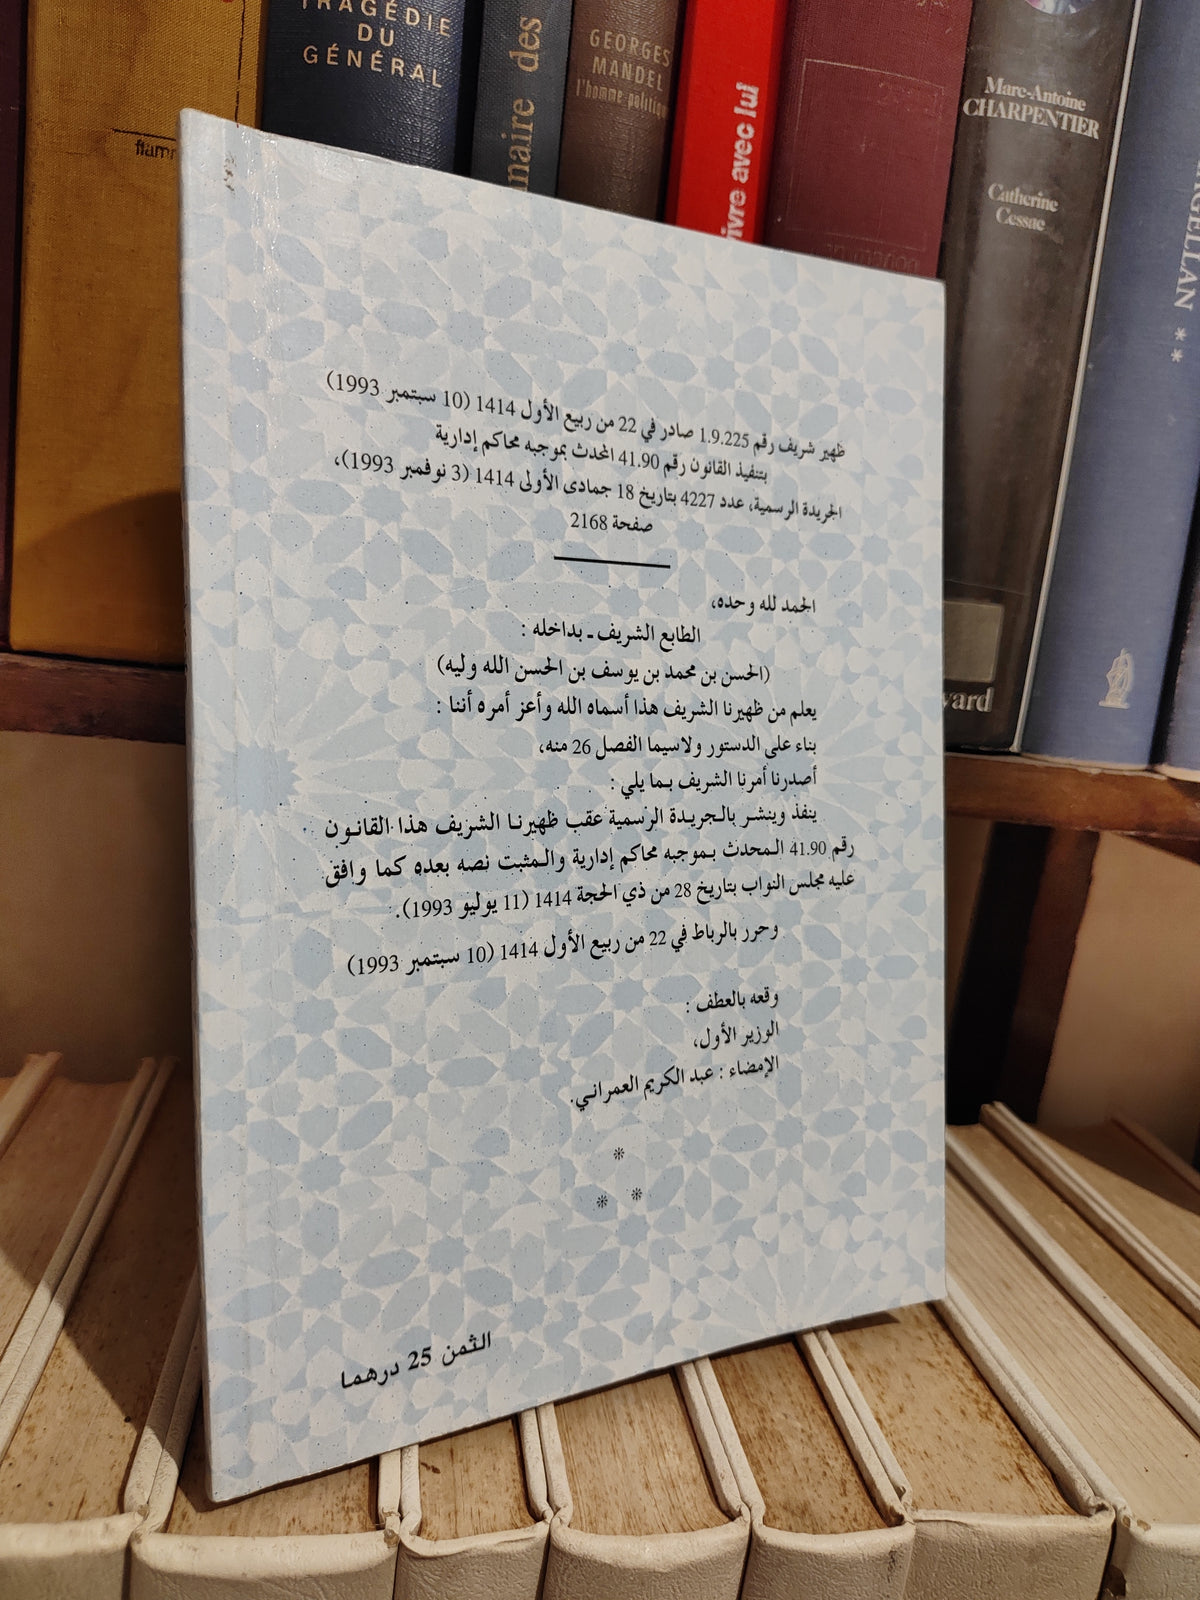 TRAGÉDIE
DU
GÉNÉRAL
naire des
GEORGES
MANDEL
l'homme politique
ivre avec lui
Marc-Antoine
CHARPENTIER
Catherine
Cessac
GELLAN **
vard
flamm
ظهير شريف رقم 1.9.225 صادر في 22 من ربيع الأول 1414 (10 سبتمبر 1993)
بتنفيذ القانون رقم 41.90 المحدث بموجبه محاكم إدارية
الجريدة الرسمية، عدد 4227 بتاريخ 18 جمادى الأولى 1414 (3 نوفمبر 1993)،
صفحة 2168
الحمد لله وحده،
الطابع الشريف - بداخله :
(الحسن بن محمد بن يوسف بن الحسن الله وليه)
يعلم من ظهيرنا الشريف هذا أسماه الله وأعز أمره أننا :
بناء على الدستور ولاسيما الفصل 26 منه،
أصدرنا أمرنا الشريف بما يلي :
ينفذ وينشر بالجريدة الرسمية عقب ظهيرنا الشريف هذا القانون
رقم 41.90 المحدث بموجبه محاكم إدارية والمثبت نصه بعده كما وافق
عليه مجلس النواب بتاريخ 28 من ذي الحجة 1414 (11 يوليو 1993).
وحرر بالرباط في 22 من ربيع الأول 1414 (10 سبتمبر 1993)
وقعه بالعطف :
الوزير الأول،
الإمضاء : عبد الكريم العمراني.
الثمن 25 درهما